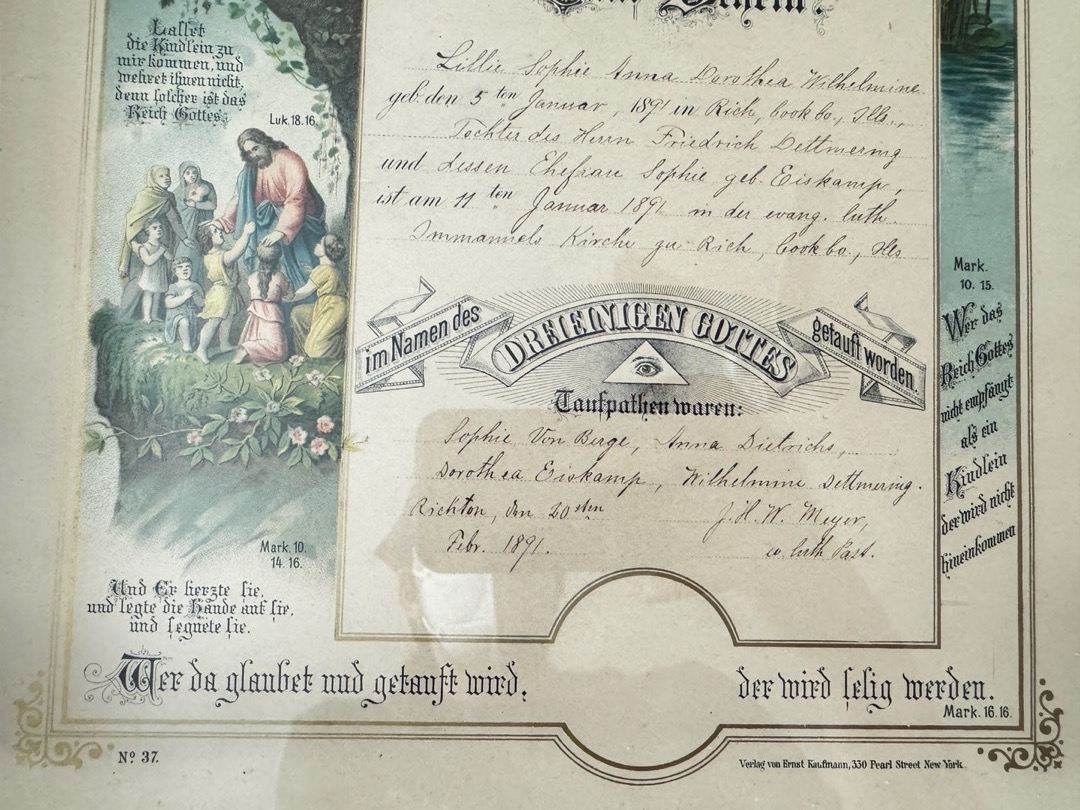 Tauf-Schein.
Lasset
die Kindlein zu
mir kommen, und
wehret ihnen nicht,
denn solcher ist das
Reich Gottes.
Luk. 18. 16.
Lillie Sophie Anna Dorothea Wilhelmine
geb. den 5ten Januar, 1891 in Rich, Cook Co., Ills.,
Tochter des Herrn Friedrich Dettmering
und dessen Ehefrau Sophie geb. Eiskamp,
ist am 11ten Januar 1891 in der evang. luth.
Immanuels Kirche zu Rich, Cook Co., Ills
im Namen des
DREIEINIGEN GOTTES
getauft worden.
Taufpathen waren:
Sophie Von Berge, Anna Dietrichs,
Dorothea Eiskamp, Wilhelmine Dettmering.
Richton, den 20sten
Febr. 1891.
J. H. W. Meyer,
e. luth Past.
Mark. 10.
14. 16.
Und Er herzte sie,
und legte die Hände auf sie,
und segnete sie.
Mark.
10. 15.
Wer das
Reich Gottes
nicht empfängt
als ein
Kindlein
der wird nicht
hineinkommen
Wer da glaubet und getauft wird,
der wird selig werden.
Mark. 16. 16.
No 37.
Verlag von Ernst Kaufmann, 330 Pearl Street New York.